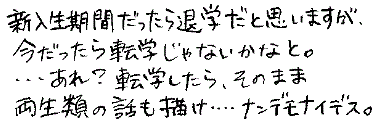 新入生期間だったら退学だと思いますが、
今だったら転学じゃないかなと。
…あれ？転学したら、そのまま
両生類の話も描け……ナンデモナイデス。